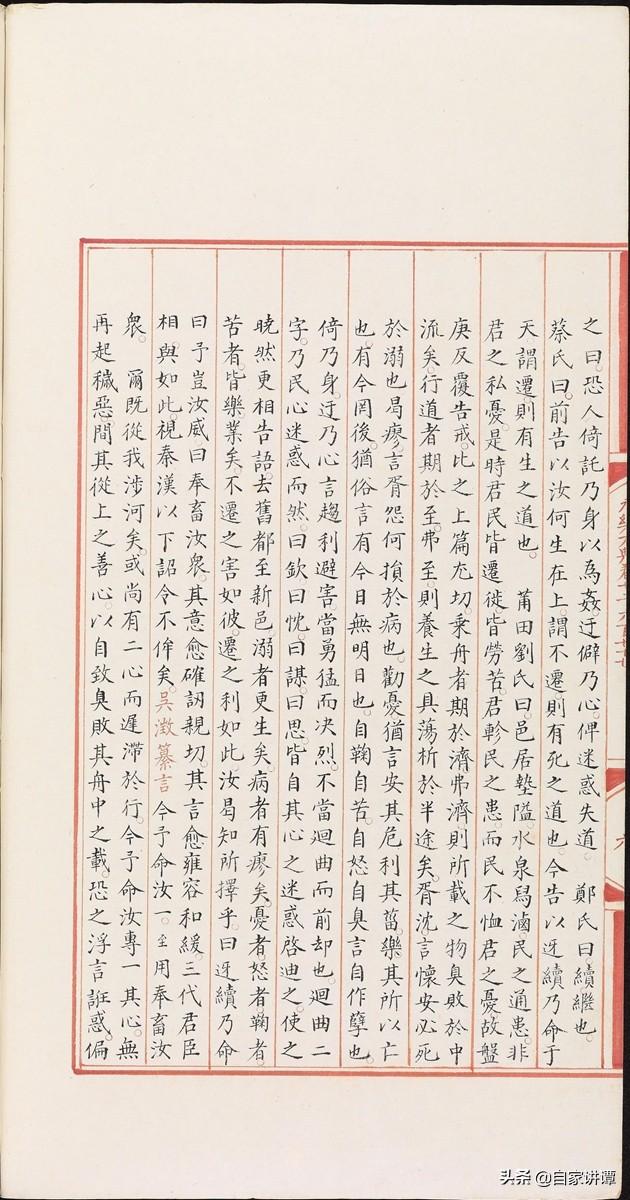 之曰。恐人倚託乃身以為姦。迂僻乃心。俾迷惑失道。 鄭氏曰。續繼也。
蔡氏曰。前告以汝何生在上。謂不遷則有死之道也。今告以迓續乃命于
天。謂遷則有生之道也。 莆田劉氏曰。邑居墊隘。水泉舄滷。民之通患。非
君之私憂。是時君民皆遷徙。皆勞苦。君軫民之患。而民不恤君之憂。故盤
庚反覆告戒。比之上篇尤切。乘舟者期於濟。弗濟則所載之物臭敗於中
流矣。行道者期於至。弗至則養生之具蕩析於半途矣。胥沈言懷安必死
於溺也。曷瘳言胥怨何損於病也。勸憂猶言安其危利其菑。樂其所以亡
也。有今罔後。猶俗言有今日無明日也。自鞠自苦。自怒自臭言自作孽也。
倚乃身。迂乃心。言趨利避害。當勇猛而决烈。不當迴曲而前却也。迴曲二
字。乃民心迷惑而然。曰欽。曰忱。曰謀。曰思。皆自其心之迷惑啓迪之。使之
曉然更相告語。去舊都至新邑。溺者更生矣。病者有瘳矣。憂者怒者。鞠者。
苦者。皆樂業矣。不遷之害如彼。遷之利如此。汝曷知所擇乎。曰迓續乃命
曰予豈汝威。曰奉畜汝衆。其意愈確訒親切。其言愈雍容和緩。三代君臣
相與如此。視秦漢以下詔令不侔矣。吳澂纂言 今予命汝一。至用奉畜汝
衆。 爾既從我涉河矣。或尚有二心而遲滯於行。今予命汝專一其心。無
再起穢惡。間其從上之善心。以自致臭敗其舟中之載。恐之浮言誑惑。偏
六
头条 @自家讲谭